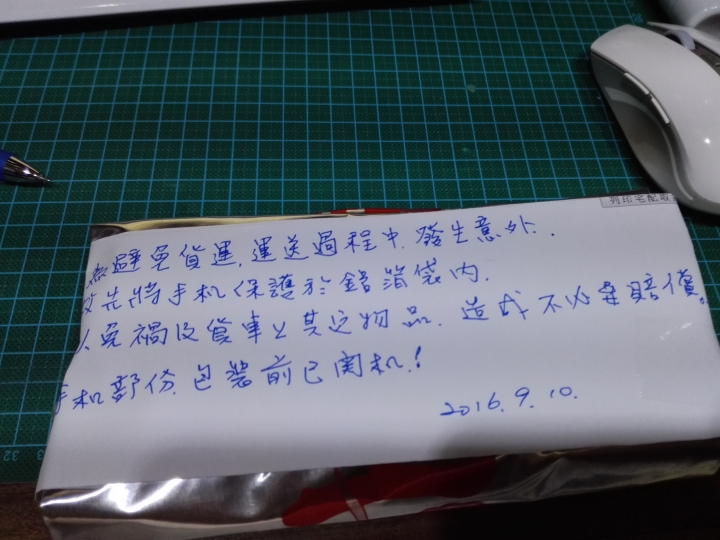 列印宅配取
避免貨運,運送過程中,發生意外.
故先將手机保護於鋁箔袋內.
以免禍及貨車与其它物品.造成不必要賠償。
手机部份,包裝前已関机!
2016.9.10.
32